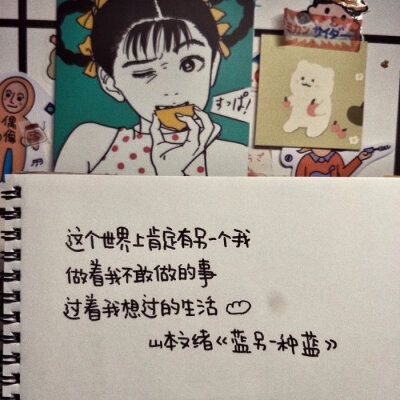 ミカン
サイダー
すっぱ!
偶像
这个世界上肯定有另一个我
做着我不敢做的事
过着我想过的生活
山本文绪《蓝另一种蓝》